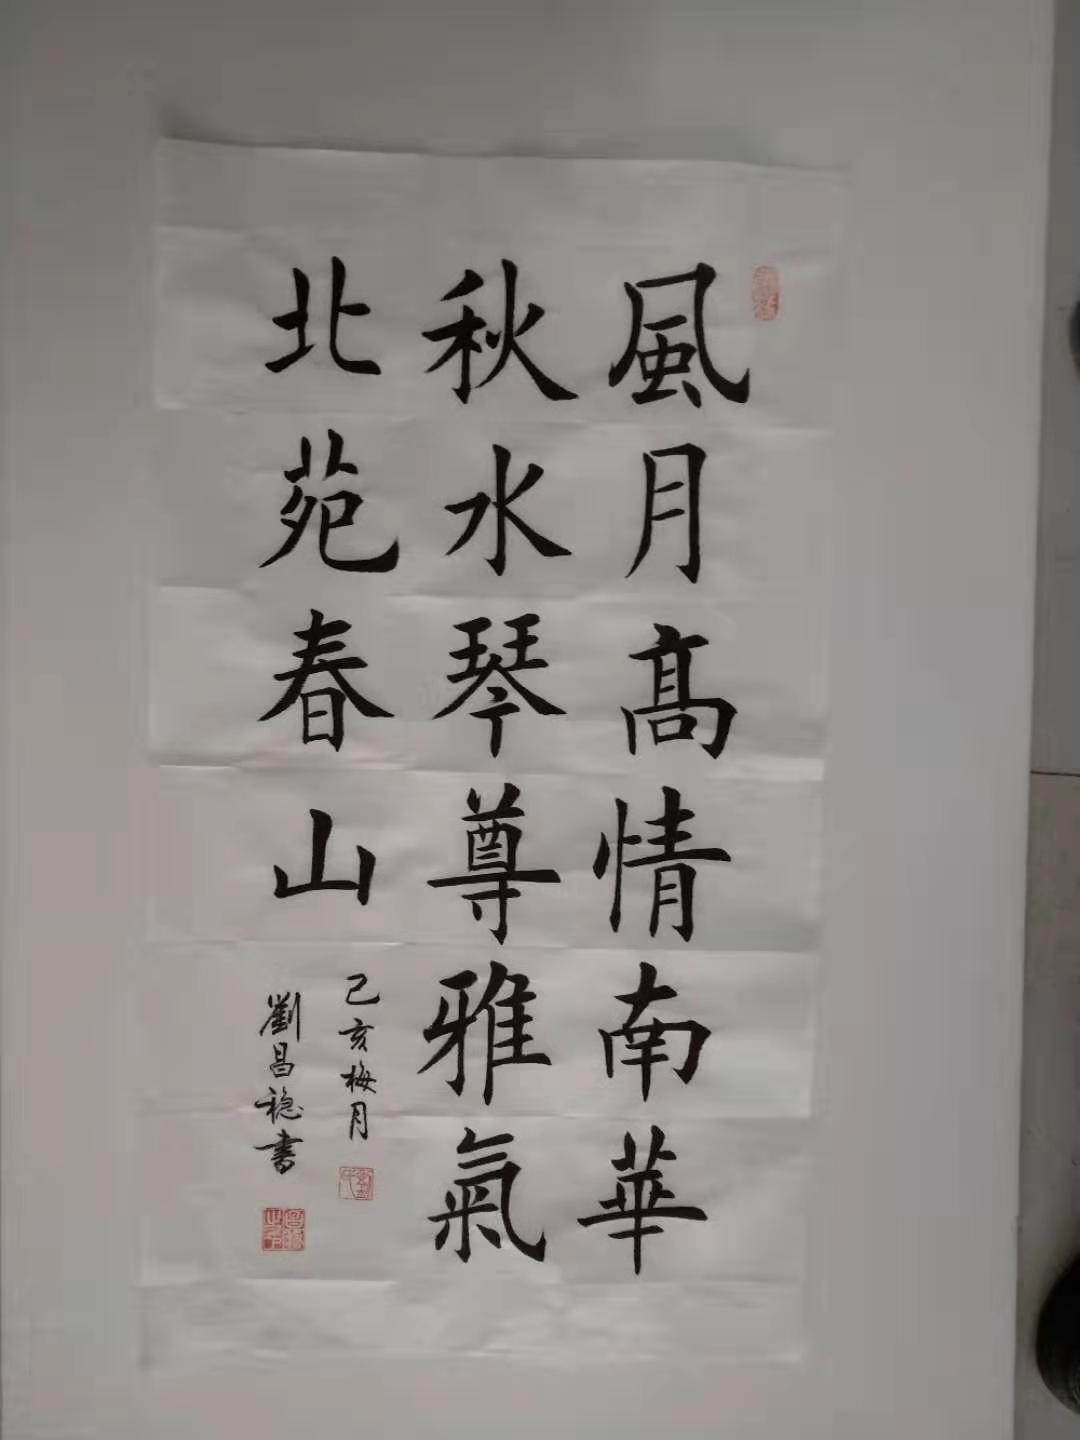 風月髙情南華
秋水琴尊雅氣
北苑春山
己亥梅月
劉昌稳書